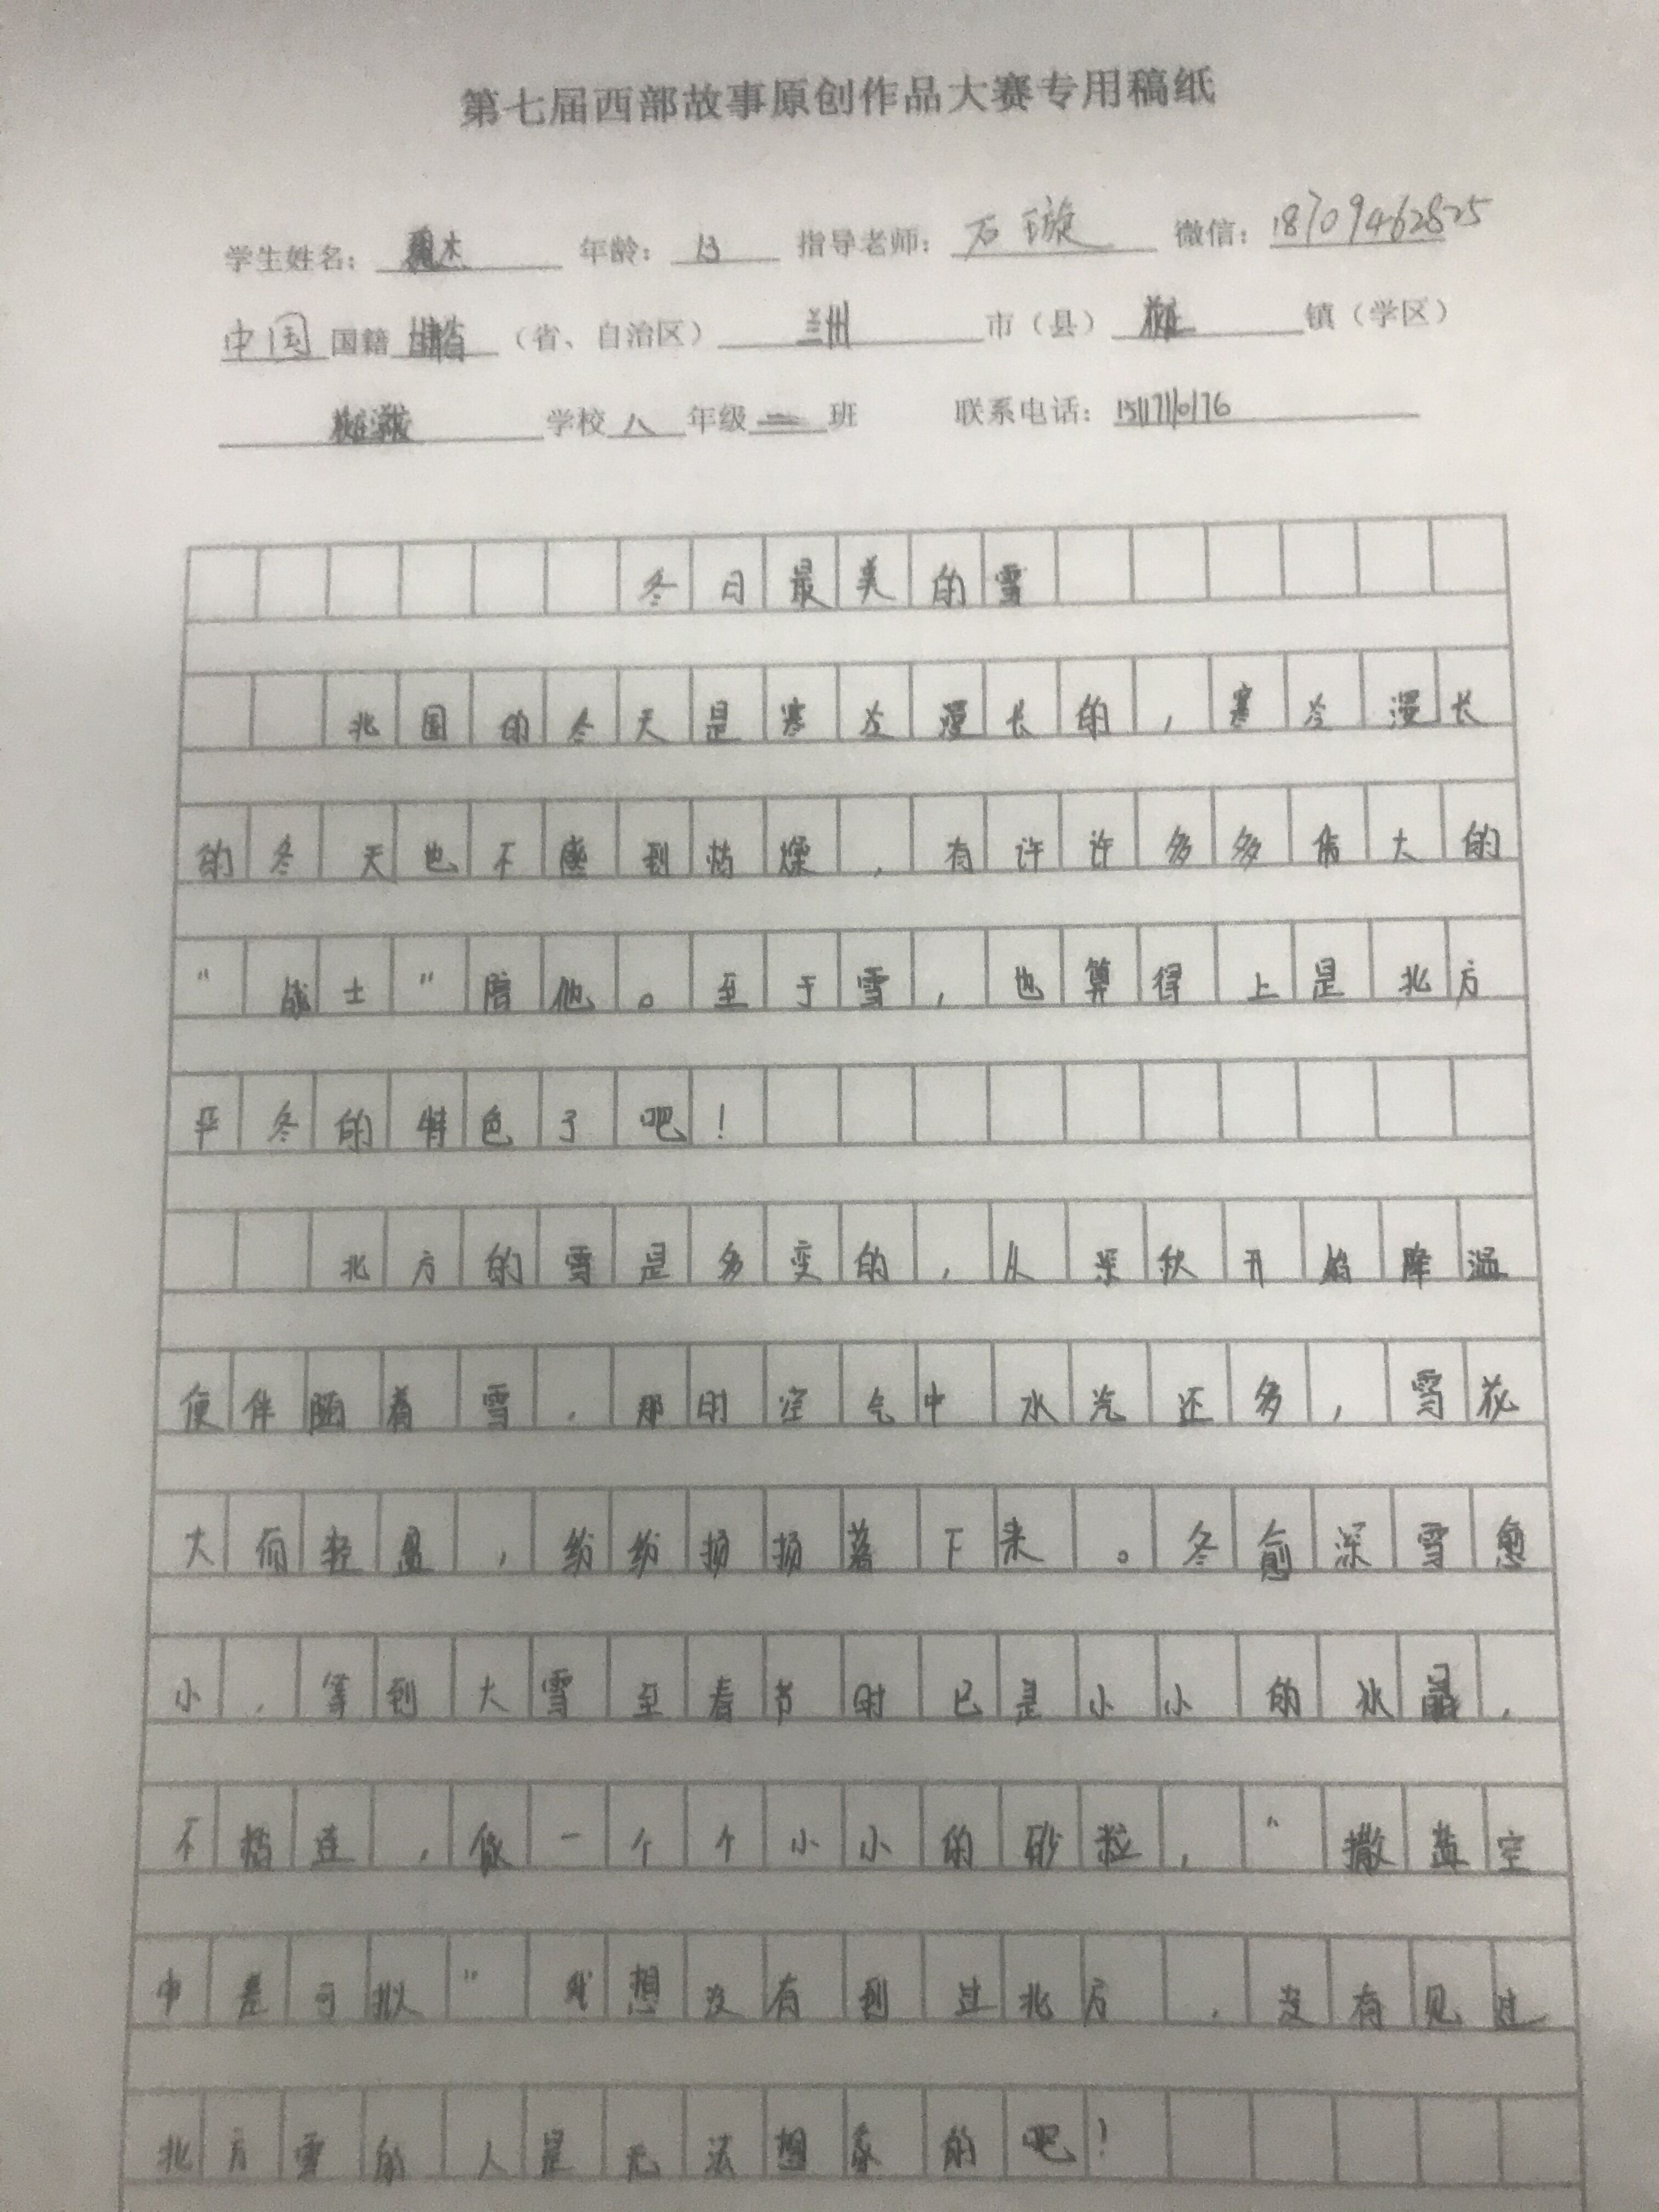 第七届西部故事原创作品大赛专用稿纸
学生姓名： 年龄：13 指导老师：石璇 微信：18709462825
中国国籍 甘肃省（省、自治区）兰州市（县） 镇（学区）
学校八年级二班 联系电话：
冬日最美的雪
北国的冬天是寒冷漫长的，寒冷漫长
的冬天也不感到枯燥，有许许多多伟大的
“战士”陪他。至于雪，也算得上是北方
平冬的特色了吧！
北方的雪是多变的，从深秋开始降温
便伴随着雪，那时空气中水汽还多，雪花
大而轻盈，纷纷扬扬落下来。冬愈深雪愈
小，等到大雪至春节时已是小小的冰晶，
不粘连，像一个个小小的砂粒，“撒盐空
中差可拟”我想没有到过北方，没有见过
北方雪的人是无法想象的吧！